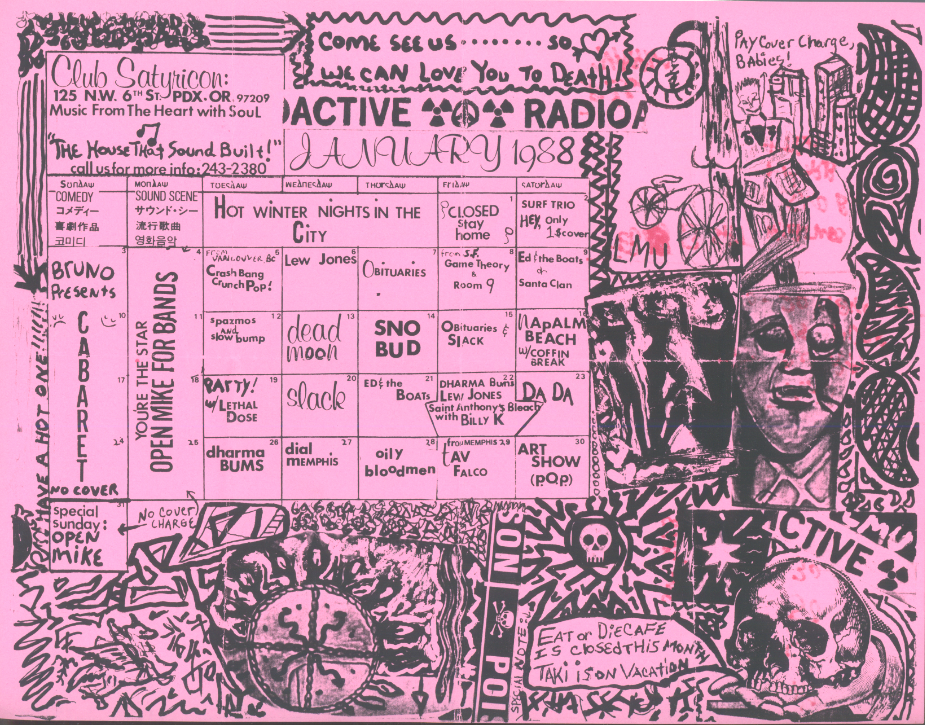 COME SEE US ........ SO
WE CAN LOVE YOU TO DEATH!
PAY COVER CHARGE,
BABIES!
Club Satyricon:
125 N.W. 6TH ST. PDX. OR. 97209
Music From The Heart with SouL
"THE HOUSE THAT Sound Built!"
call us for more info: 243-2380
OACTIVE RADIOA
JANUARY 1988
SUNDAY MONDAY TUESDAY WEDNESDAY THURSDAY FRIDAY SATURDAY
COMEDY
コメディー
喜劇作品
코미디
SOUND SCENE
サウンド・シー
流行歌曲
영화음악
HOT WINTER NIGHTS IN THE
CITY
1
CLOSED
stay
home
2
SURF TRIO
HEY, only
1$cover
3
BRUNO
Presents
4
5
From
VANCOUVER BC
Crash Bang
Crunch Pop!
6
Lew Jones
7
OBITUARIES
8
from S.F.
Game Theory
&
Room 9
9
Ed & the Boats
&
Santa Clan
10
CABARET
NO COVER
YOU'RE THE STAR
OPEN MIKE FOR BANDS
11
12
spazmos
AND
slow bump
13
dead
moon
14
SNO
BUD
15
OBituaries &
SlACK
16
NAPALM
BEACH
W/COFFIN
BREAK
17
18
19
PARTY!
w/ LETHAL
DOSE
20
slack
21
ED & the
BOATS
22
DHARMA Bums
LEW JONES
Saint Anthony's Bleach
with BILLY K
23
DA DA
24
25
26
dharma
BUMS
27
dial
MEMPHIS
28
oily
bloodmen
29
from MEMPHIS
tAV
FALCO
30
ART
SHOW
(POP)
31
special
Sunday:
OPEN
MIKE
NO COVER
CHARGE
HAVE A HOT ONE!!!!!!
EMU
SON POIS
CTIVE
SPECIAL NOTE:
EAT or DIE CAFE
IS CLOSED THIS MONTH
TAKI IS ON VACATION